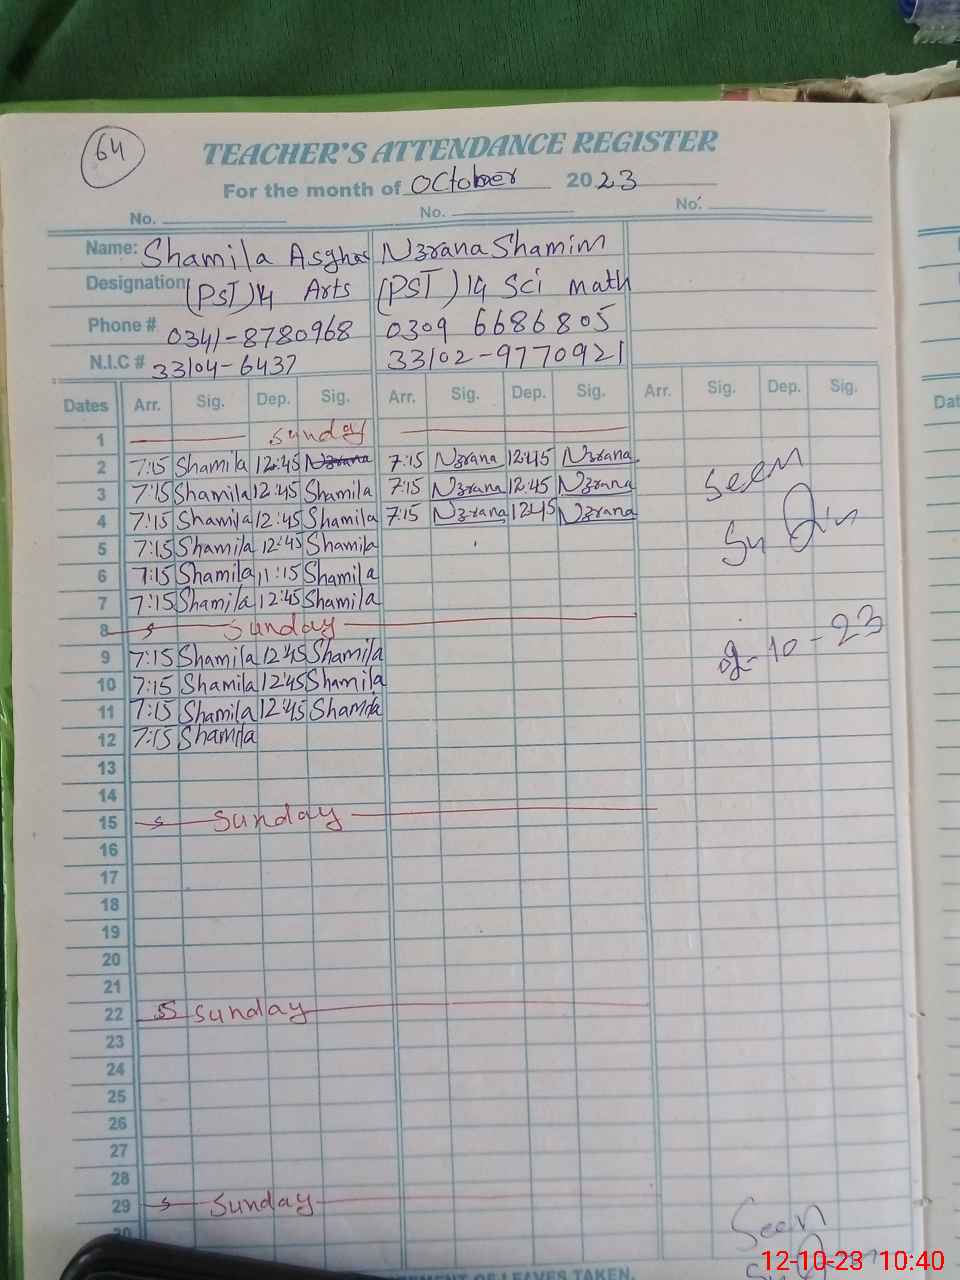 64
TEACHER'S ATTENDANCE REGISTER
For the month of October 2023
No. No. No.
Name: Shamila Asghar Nzrana Shamim
Designation (PST) 14 Arts (PST) 14 Sci math
Phone # 0341-8780968 0309 6686805
N.I.C # 33104-6437 33102-9770921
Dates Arr. Sig. Dep. Sig. Arr. Sig. Dep. Sig. Arr. Sig. Dep. Sig.
1 Sunday
2 7:15 Shamila 12:45 Nzrana 7:15 Nzrana 12:45 Nzrana
3 7:15 Shamila 12:45 Shamila 7:15 Nzrana 12:45 Nzrana
Seen
4 7:15 Shamila 12:45 Shamila 7:15 Nzrana 12:45 Nzrana
5 7:15 Shamila 12:45 Shamila
6 7:15 Shamila 11:15 Shamila
7 7:15 Shamila 12:45 Shamila
8 S Sunday
9 7:15 Shamila 12:45 Shamila
-10-23
10 7:15 Shamila 12:45 Shamila
11 7:15 Shamila 12:45 Shamila
12 7:15 Shamila
13
14
15 S Sunday
16
17
18
19
20
21
22 S Sunday
23
24
25
26
27
28
29 S Sunday
30
Seen
12-10-23 10:40
OF LEAVES TAKEN.
Dat